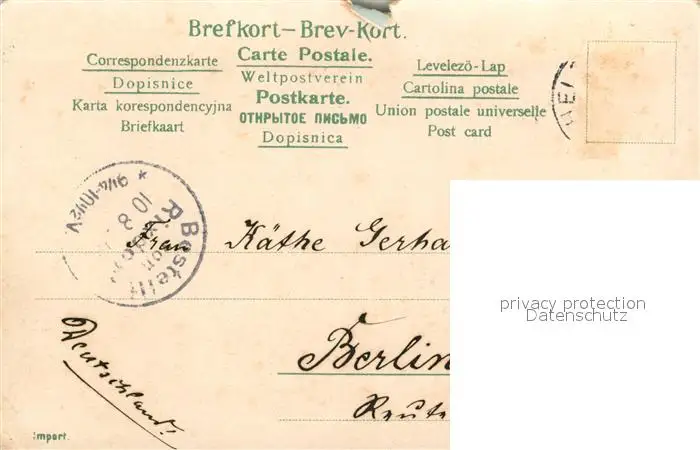 Brefkort–Brev-Kort.
Correspondenzkarte
Carte Postale.
Levelezö-Lap
Dopisnice
Weltpostverein
Cartolina postale
Karta korespondencyjna
Postkarte.
Union postale universelle
Briefkaart
ОТКРЫТОЕ ПИСЬМО
Post card
Dopisnica
* 9¼-10½V.
10 8
Bestellt
Frau Käthe Gerha
privacy protection
Datenschutz
Berlin
Deutschland!
Reute
Import.